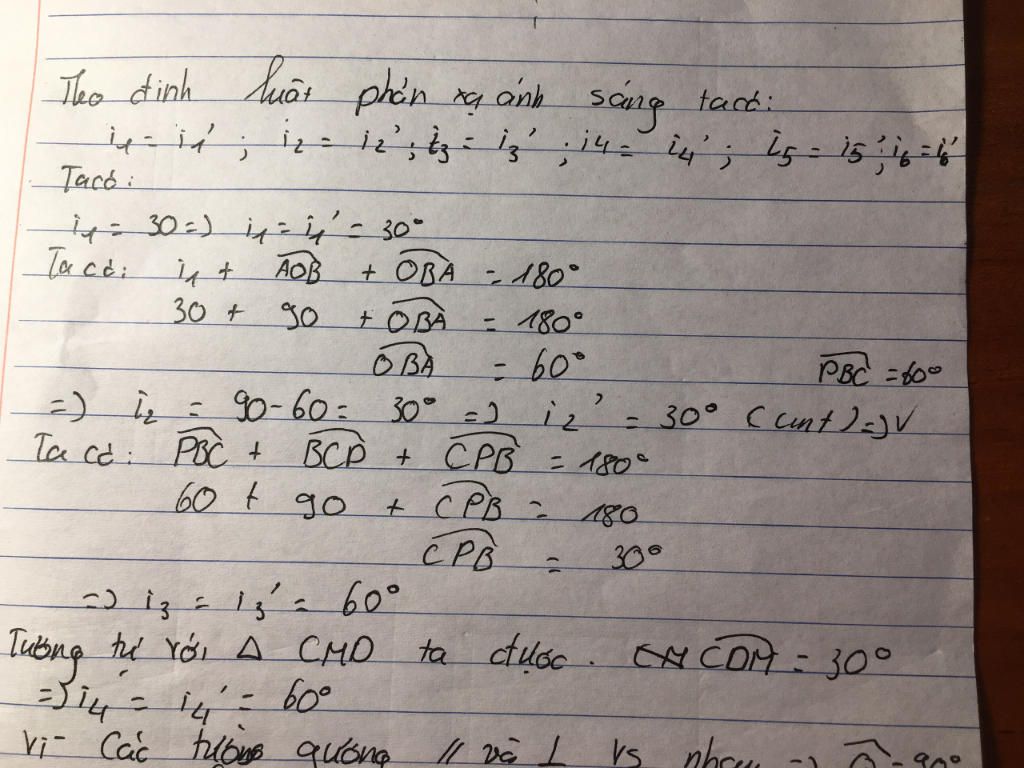 Theo định luật phản xạ ánh sáng ta có:
i1 = i1' ; i2 = i2' ; i3 = i3' ; i4 = i4' ; i5 = i5' ; i6 = i6'
Ta có:
i1 = 30 => i1 = i1' = 30°
Ta có: i1 + AOB + OBA = 180°
30 + 90 + OBA = 180°
OBA = 60°
PBC = 60°
=> i2 = 90-60 = 30° => i2' = 30° (cmt) => V
Ta có: PBC + BCP + CPB = 180°
60 + 90 + CPB = 180
CPB = 30°
=> i3 = i3' = 60°
Tương tự với Δ CMD ta được. CDM = 30°
=> i4 = i4' = 60°
Vì Các tường gương // và ⊥ vs nhau =>